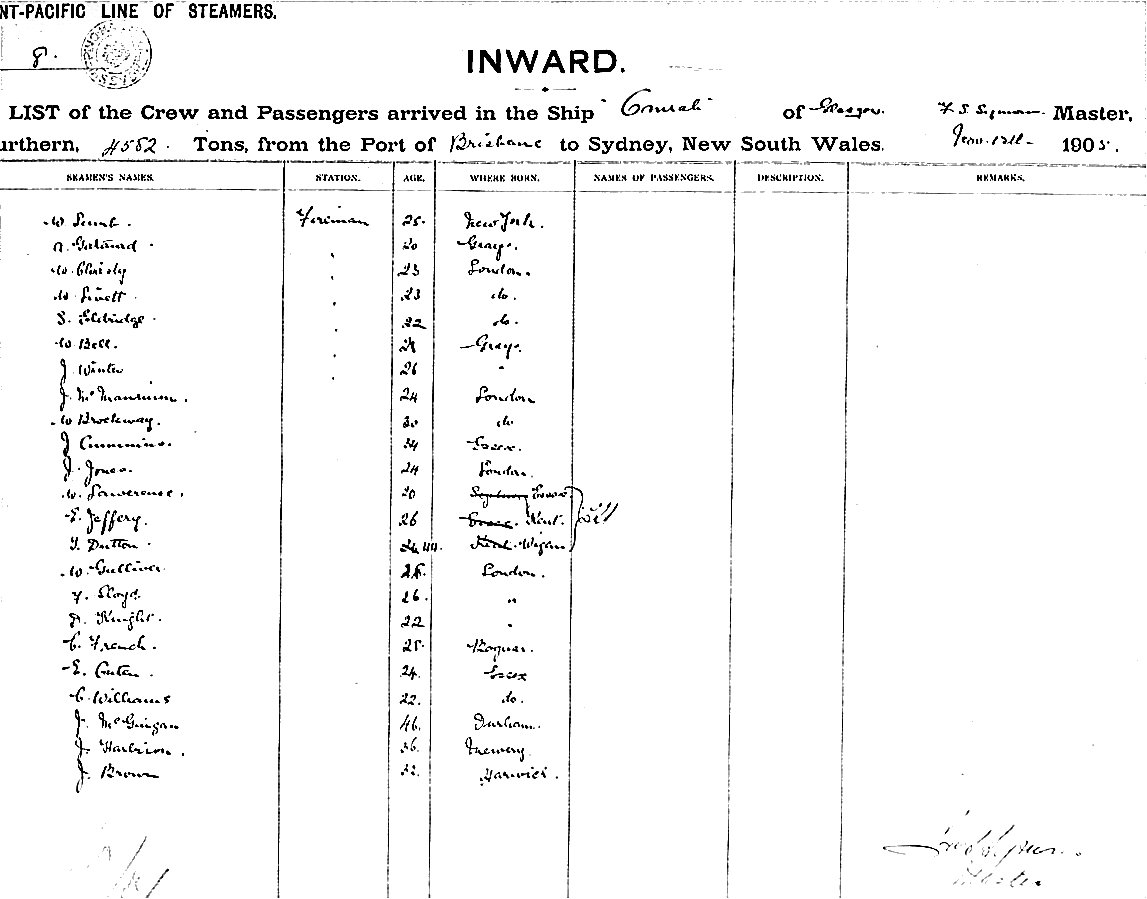 NT-PACIFIC LINE OF STEAMERS.
8.
INWARD.
LIST of the Crew and Passengers arrived in the Ship "Omrah" of Glasgow. Master,
urthern, 4582. Tons, from the Port of Brisbane to Sydney, New South Wales. 1905.
SEAMEN'S NAMES. STATION. AGE. WHERE BORN. NAMES OF PASSENGERS. DESCRIPTION. REMARKS.
W Fireman 25. New York.
A. 20 Grays.
W 23 London.
W 23 do.
S. Eldridge. 22 do.
W Bell. Grays.
J Winter 26 "
J. Mc 24 London
W Brockway. 30 do
J Cummins. 34 Essex.
J. Jones. 24 London.
W. Lawerence. 20 Essex
E. Jeffery. 26 Essex. Kent.
T. Dutton. 44. Kent. Wigan
W. Gulliver. 28. London.
F. Lloyd. 26. "
A. Knight. 22 "
C. French. 25.
E. 24. Essex
C. Williams 22. do.
J. McGuigan 46. Durham.
J. Harbison. 36. Newery.
J. Brown 32. Harwick.
Master